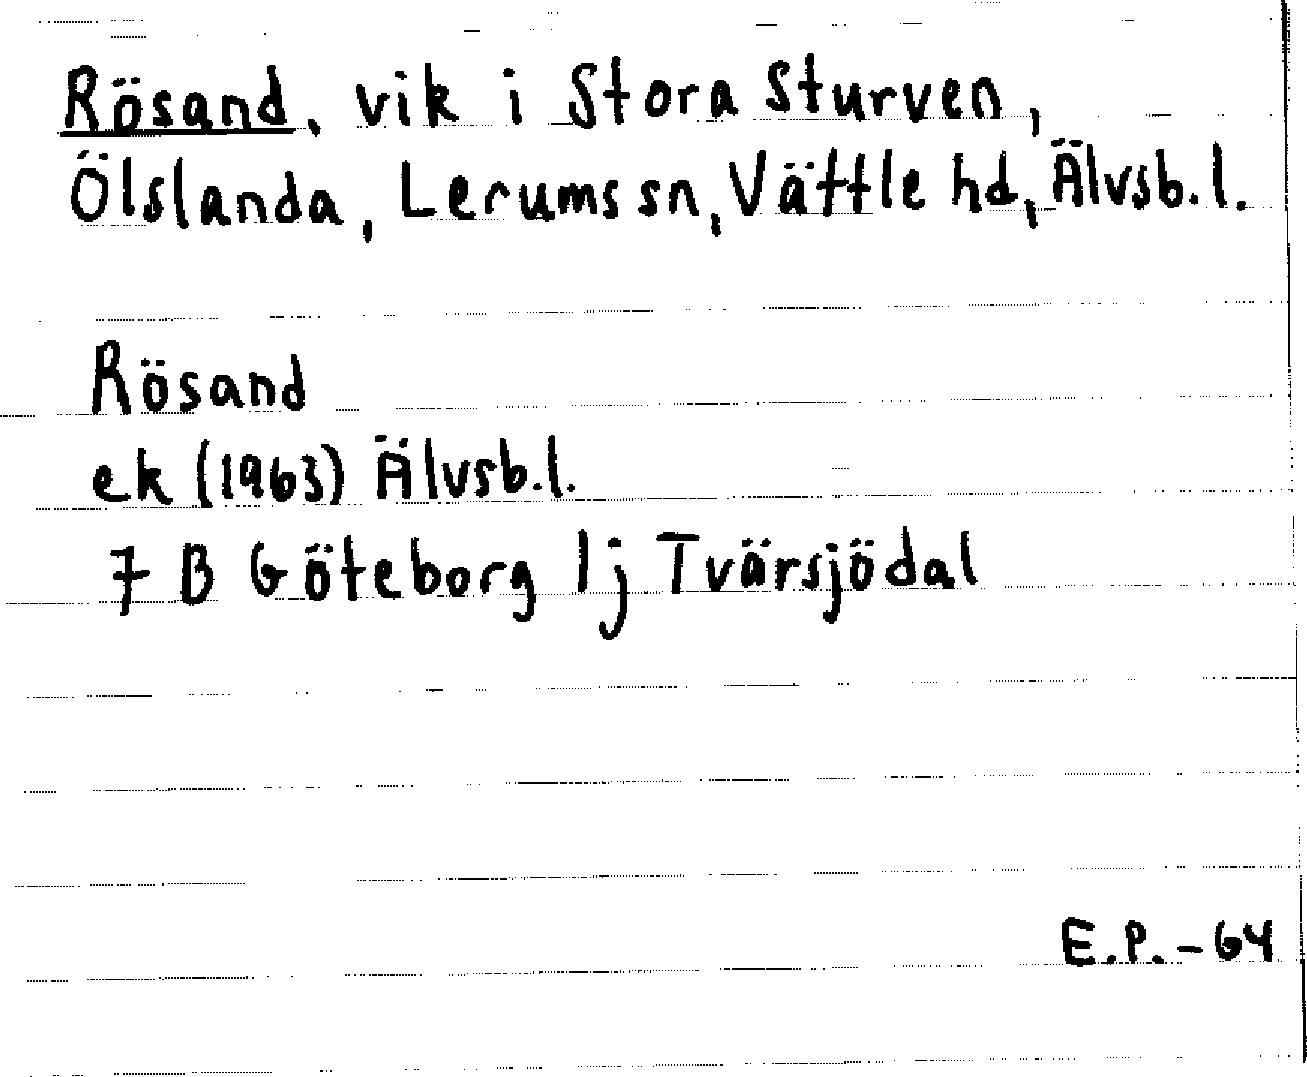 Rösand, vik i Stora Sturven,
Ölslanda, Lerums sn, Vättle hd, Älvsb. l.
Rösand
ek (1963) Älvsb. l.
7 B Göteborg 1j Tvärsjödal
E.P. - 64